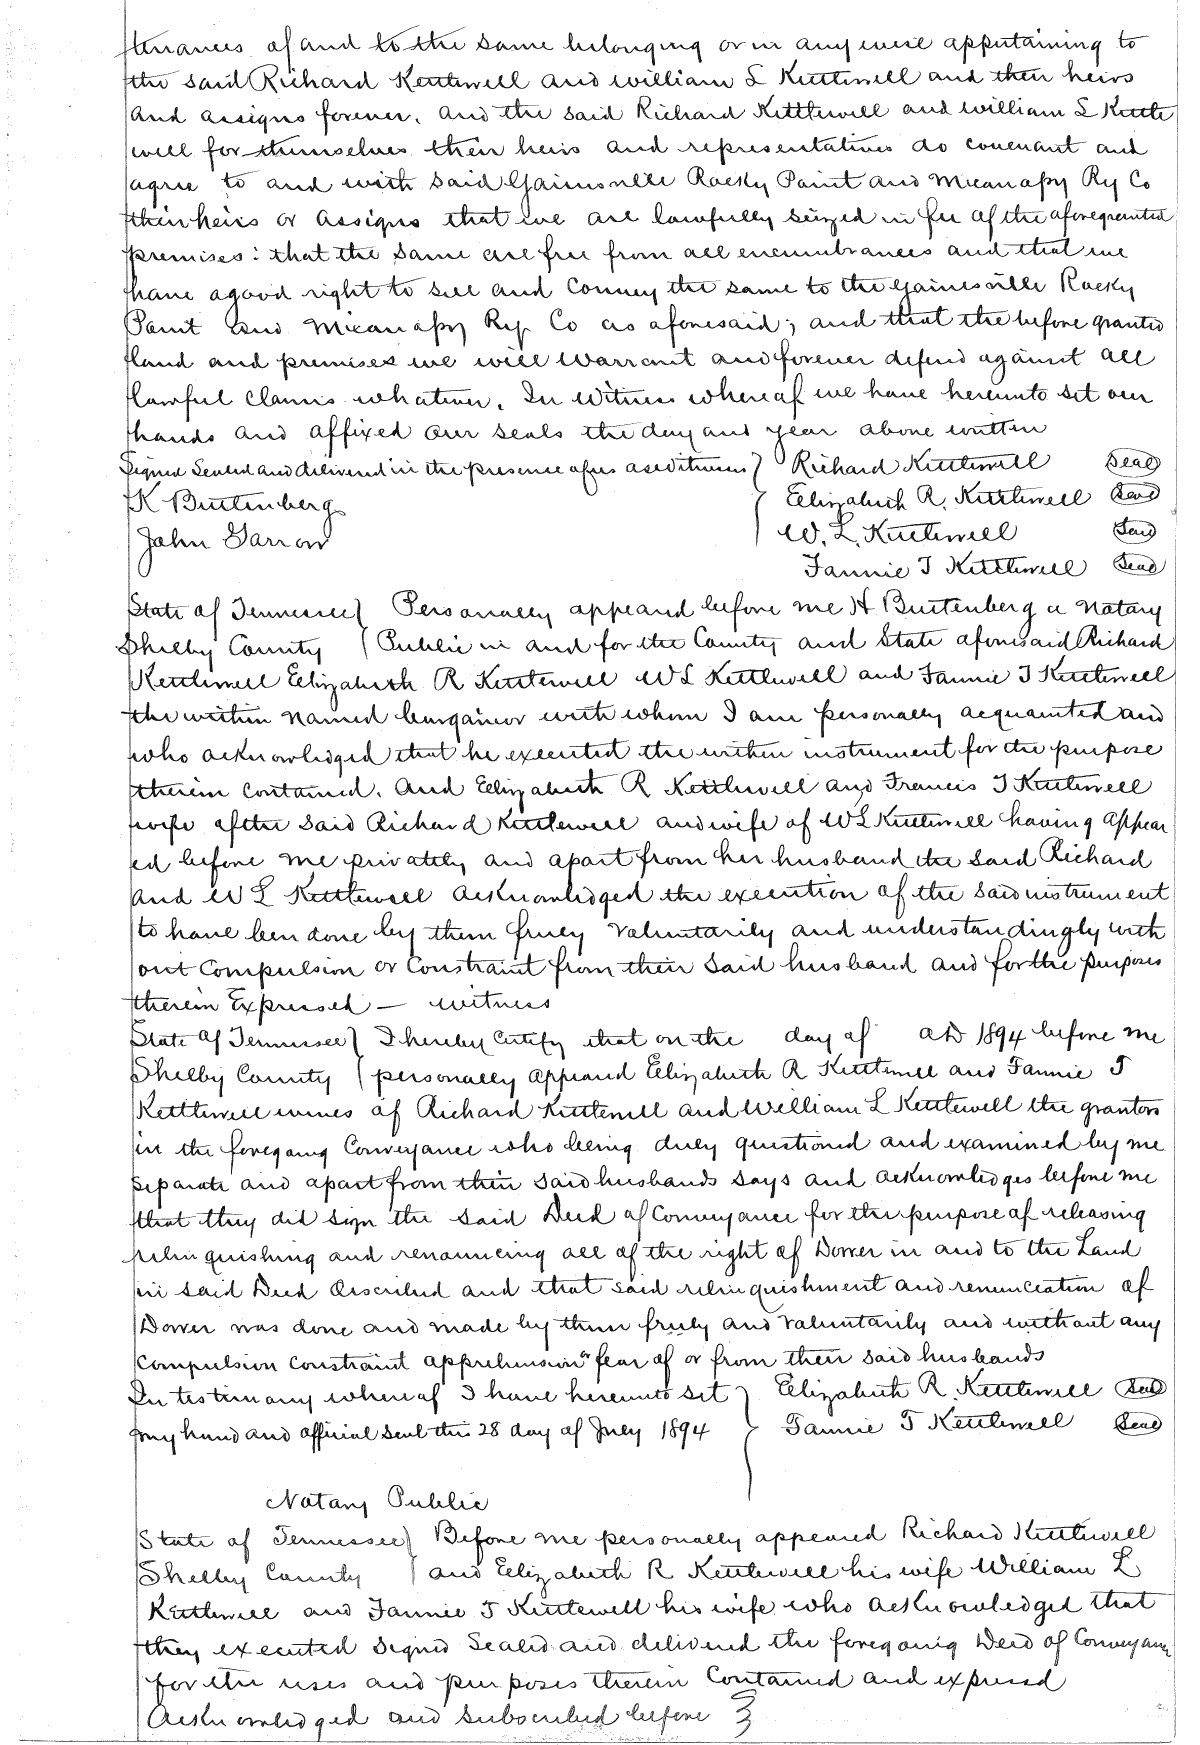 tenances of and to the same belonging or in any wise appertaining to
the said Richard Kettlewell and William L Kettlewell and their heirs
and assigns forever. And the said Richard Kettlewell and William L Kettle
well for themselves their heirs and representatives do covenant and
agree to and with said Gainesville Rocky Point and Micanopy Ry Co
their heirs or assigns that we are lawfully seized in fee of the aforegranted
premises: that the same are free from all encumbrances and that we
have a good right to sell and convey the same to the Gainesville Rocky
Point and Micanopy Ry. Co as aforesaid; and that the before granted
land and premises we will warrant and forever defend against all
lawful claims whatever. In Witness whereof we have hereunto set our
hands and affixed our seals the day and year above written
Signed Sealed and delivered in the presence of us as witnesses } Richard Kettlewell Seal
K Buttenberg Elizabeth R. Kettlewell Seal
John Garrow W. L. Kettlewell Seal
Fannie T Kettlewell Seal
State of Tennessee } Personally appeared before me H Buttenberg a Notary
Shelby County } Public in and for the County and State aforesaid Richard
Kettlewell Elizabeth R Kettlewell W L Kettlewell and Fannie T Kettlewell
the within named bargainor with whom I am personally acquainted and
who acknowledged that he executed the within instrument for the purpose
therein contained. And Elizabeth R Kettlewell and Francis T Kettlewell
wife of the said Richard Kettlewell and wife of W L Kettlewell having appear
ed before me privately and apart from her husband the said Richard
and W L Kettlewell acknowledged the execution of the said instrument
to have ben done by them freely voluntarily and understandingly with
out compulsion or constraint from their said husband and for the purposes
therein Expressed — witness
State of Tennessee } I hereby certify that on the day of AD 1894 before me
Shelby County } personally appeared Elizabeth R Kettlewell and Fannie T
Kettlewell wives of Richard Kettlewell and William L Kettlewell the grantors
in the foregoing Conveyance who being duly questioned and examined by me
separate and apart from their said husbands says and acknowledges before me
that they did sign the said Deed of Conveyance for the purpose of releasing
relinquishing and renouncing all of the right of Dower in and to the Land
in said Deed Described and that said relinquishment and renunciation of
Dower was done and made by them freely and voluntarily and without any
Compulsion Constraint apprehension or fear of or from their said husbands
In testimony whereof I have hereunto set } Elizabeth R. Kettlewell Seal
my hand and official seal this 28 day of July 1894 } Fannie T Kettlewell Seal
Notary Public
State of Tennessee } Before me personally appeared Richard Kettlewell
Shelby County } and Elizabeth R Kettlewell his wife William L
Kettlewell and Fannie T Kettlewell his wife who acknowledged that
they executed signed sealed and delivered the foregoing Deed of Conveyance
for the uses and purposes therein contained and expressed
Acknowledged and subscribed before }